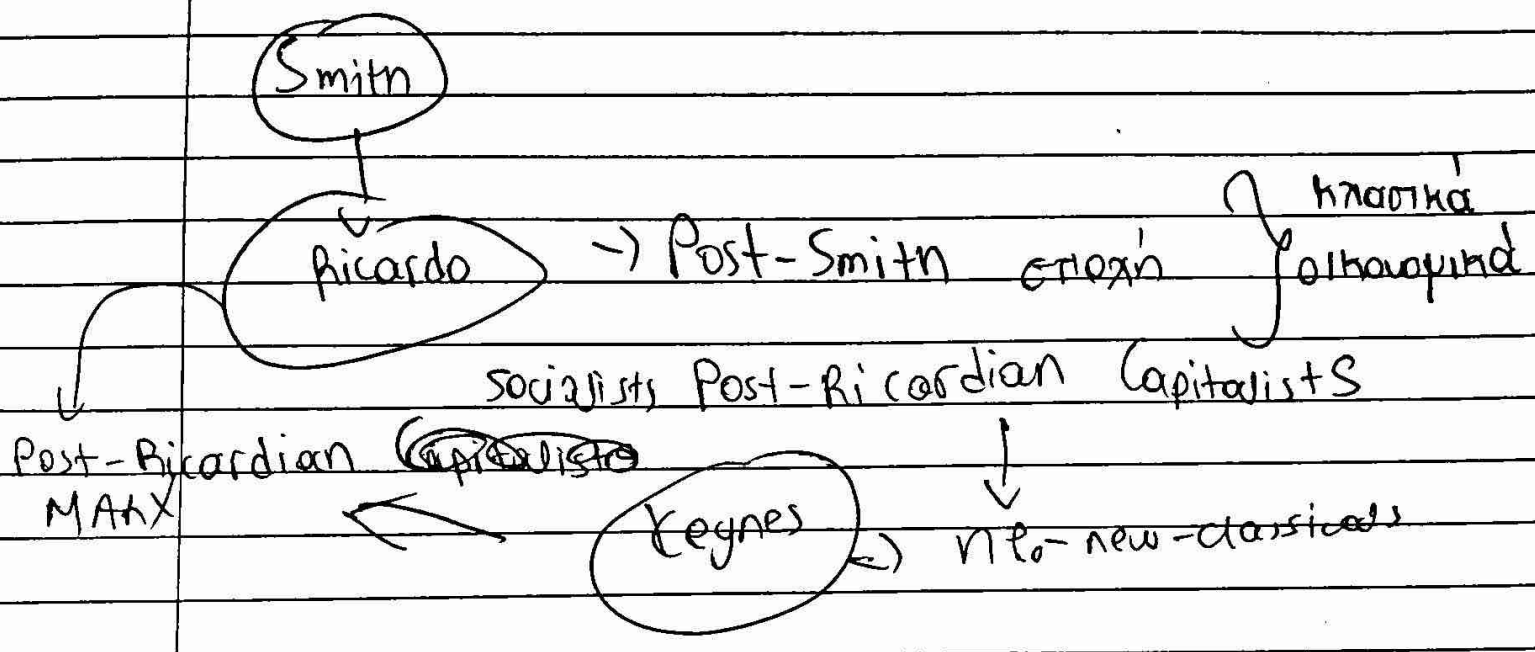 Smith
Ricardo → Post-Smith εποχή } κλασικά οικονομικά
socialists Post-Ricardian Capitalists
Post-Ricardian
MARX
Keynes → neo-new-classicals